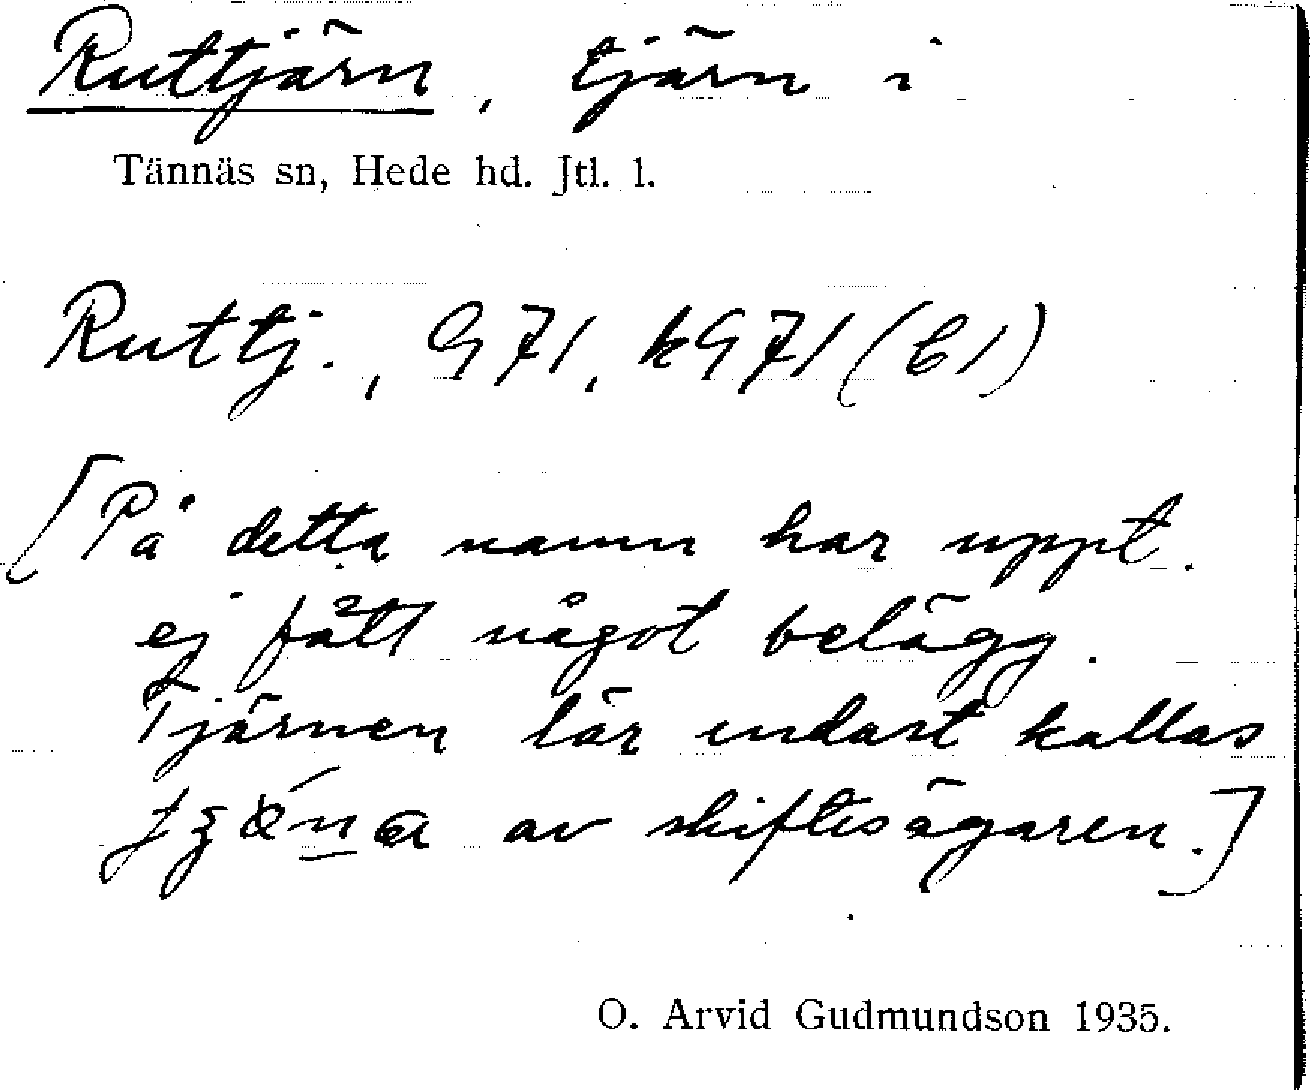 Ruttjärn, tjärn i
Tännäs sn, Hede hd. Jtl. l.
Ruttj., G 71, kG 71 (b1)
[På detta namn har uppt.
ej fått något belägg.
Tjärnen lär endast kallas
av skiftesägaren.]
O. Arvid Gudmundson 1935.